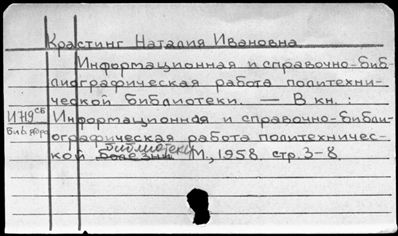 Крастинг Наталия Ивановна.
Информационная и справочно-биб-
лиографическая работа политехни-
ческой библиотеки. — В кн.:
Информационная и справочно-библи-
ографическая работа политехничес-
библиотеки
кой болезни М., 1958. стр. 3-8.